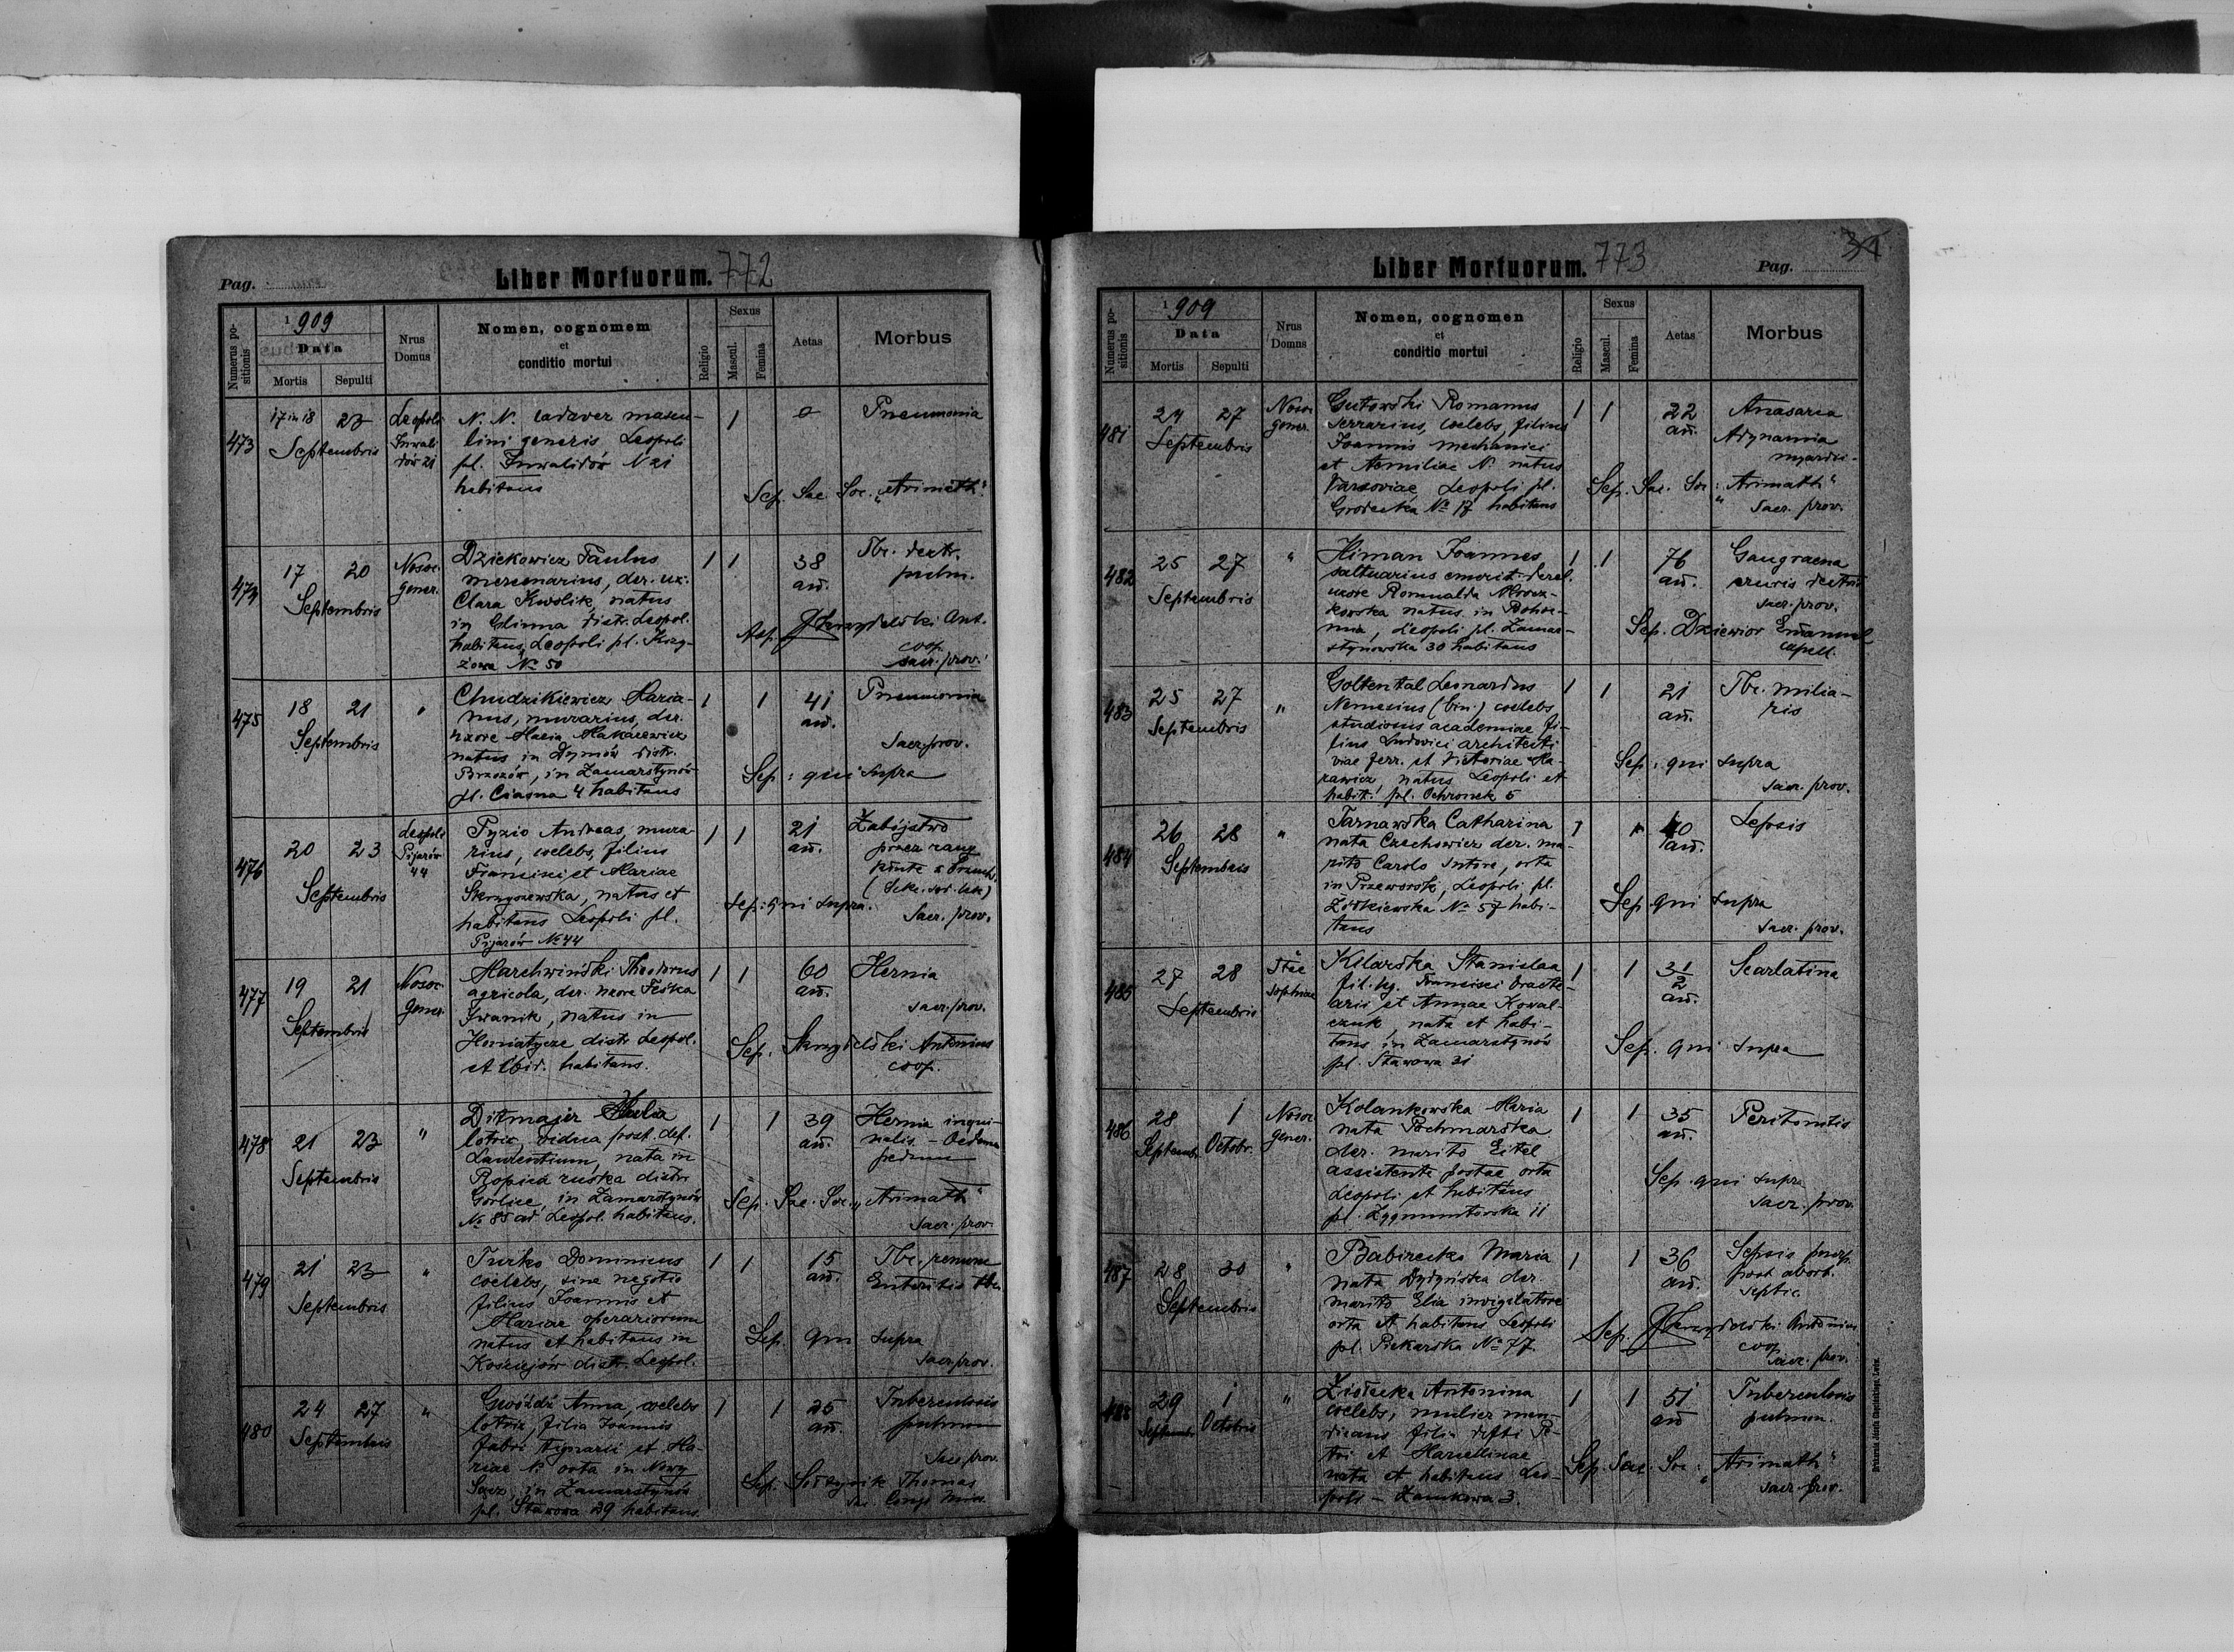 Pag.
Liber Mortuorum. 772
Numerus positionis
1909
Data
Mortis
Sepulti
Nrus Domus
Nomen, cognomem
et
conditio mortui
Religio
Sexus
Mascul.
Femina
Aetas
Morbus
473
17 in 18 23
Septembris
Leopoli
Inwali
dów 21
N. N. cadaver mascu-
lini generis Leopoli
pl. Inwalidów N 21
habitans
1
Pneumonia
Sep. Sac. Soc. „Arimath."
474
17 20
Septembris
Nosoc.
gener.
Dziekowicz Paulus
mercenarius, der. ux.
Clara Kwolik, natus
in Glinna distr. Leopol.
habitans Leopoli pl. Krzy-
żowa № 50
1 1
38
an.
Tbc. dextr.
pulm.
Skrzydelski Ant.
coop.
sacr. prov.
475
18 21
Septembris
"
Chudzikiewicz Maria-
nus, murarius, der.
uxore Maria Makarewicz
natus in Dynów distr.
Brzozów, in Zamarstynów
pl. Ciasna 4 habitans
1 1
41
an.
Pneumonia
Sacr. prov.
Sep: qui supra
476
20 23
Septembris
Leopoli
Pijarów
44
Tyzio Andreas, mura
rius, coelebs, filius
Francisci et Mariae
natus et
habitans Leopoli pl.
Pijarów № 44
1 1
21
an.
Zabójstwo
przez ranę
Sep: qui supra.
Sacr. prov.
477
19 21
Septembris
Nosoc.
gener.
Marchwiński Theodorus
agricola, der. uxore Feśka
Iwanik, natus in
Honiatycze distr. Leopol.
et ibid. habitans.
1 1
60
an.
Hernia
sacr. prov.
Sep. Skrzydelski Antonius
coop.
478
21 23
Septembris
"
Ditmajer Julia
lotrix, vidua post. def.
Laurentium, nata in
Ropica ruska distr.
Gorlice, in Zamarstynów
№ 85 ad Leopol. habitans.
1 1
39
an.
Hernia ingui-
nalis. – Oedema
pedum
Sep. Sac. Soc. „Arimath"
Sacr. prov.
479
21 23
Septembris
"
Turko Dominicus
coelebs, sine negotio
filius Joannis et
Mariae operariorum
natus et habitans in
Kościejów distr. Leopol.
1 1
15
an.
Tbc. renum
Enteritis tbc.
Sep. qui supra
Sacr. prov.
480
24 27
Septembris
"
Gwóźdź Anna, coelebs
lotrix, filia Joannis
fabri tignarii et Ma-
riae N. orta in Nowy
Sącz, in Zamarstynów
pl. Stawowa 29 habitans.
1 1
25
an.
Tuberculosis
pulmon
Sac. prov.
Sep. Sołtysik Thomas
Sac. Congr. Miss.
Liber Mortuorum. 773
Pag.
34
Numerus positionis
1909
Data
Mortis
Sepulti
Nrus Domus
Nomen, cognomen
et
conditio mortui
Religio
Sexus
Mascul.
Femina
Aetas
Morbus
481
24 27
Septembris
Nosoc
gener.
Gutowski Romanus
serrarius, coelebs, filius
Joannis mechanici
et Aemiliae N. natus
Varsoviae, Leopoli pl.
Grodecka № 17 habitans
1 1
22
an.
Anasarca
Adynamia
myocardi.
Sep. Sac. Soc: „Arimath"
Sacr. prov.
482
25 27
Septembris
"
Himan Joannes
saltuarius emerit. derel.
uxore Romualda Mrocz-
kowska natus in Bohoe-
mia, Leopoli pl. Zamar-
stynowska 30 habitans
1 1
76
an.
Gangraena
cruris dextri
sacr. prov.
Sep. Dziewior Emanuel
capell.
483
25 27
Septembris
"
Goltental Leonardus
Nemesius (bin.) coelebs,
studiosus academiae fi-
lius Ludovici architecti
viae ferr. et Victoriae Ma-
rawicz natus Leopoli et
habit. pl. Ochronek 5
1 1
21
an.
Tbc. milia-
ris
Sep: qui supra
Sacr. prov.
484
26 28
Septembris
"
Tarnawska Catharina
nata Czechowicz der. ma-
rito Carolo sutore, orta
in Przeworsk, Leopoli, pl.
Żółkiewska № 57 habi-
tans
1 1
40
an.
Sepsis
Sep. qui supra
Sacr. prov.
485
27 28
Septembris
Stae
Sophiae
Kilarska Stanislaa
fil. lg. Francisci bracte-
arii et Annae Kowal-
czuk, nata et habi-
tans in Zamarstynów
pl. Stawowa 31
1 1
3 1/2
an.
Scarlatina
Sep. qui supra
486
28 1
Septembr. Octobr.
Nosoc
gener.
Kolankowska Maria
nata Pochmarska
der. marito Eitel
assistente postae orta
Leopoli et habitans
pl. Zygmuntowska 11
1 1
35
an.
Peritonitis
Sep. qui supra
Sacr. prov.
487
28 30
Septembris
"
Babirecka Maria
nata Dydyńska der.
marito Elia invigilatore
orta et habitans Leopoli
pl. Piekarska № 77.
1 1
36
an.
Sepsis puerp.
post abort.
septic.
Sep. Skrzydelski Antonius
coop.
Sacr. prov.
488
29 1
Septembr. Octobris
"
Ziółecka Antonina
coelebs, mulier men-
dicans filia defti Pe-
tri et Marcellinae
nata et habitans Leo-
poli – Zamkowa 3.
1 1
51
an
Tuberculosis
pulmon.
Sep. Sac. Soc: „Arimath"
Sacr. prov.